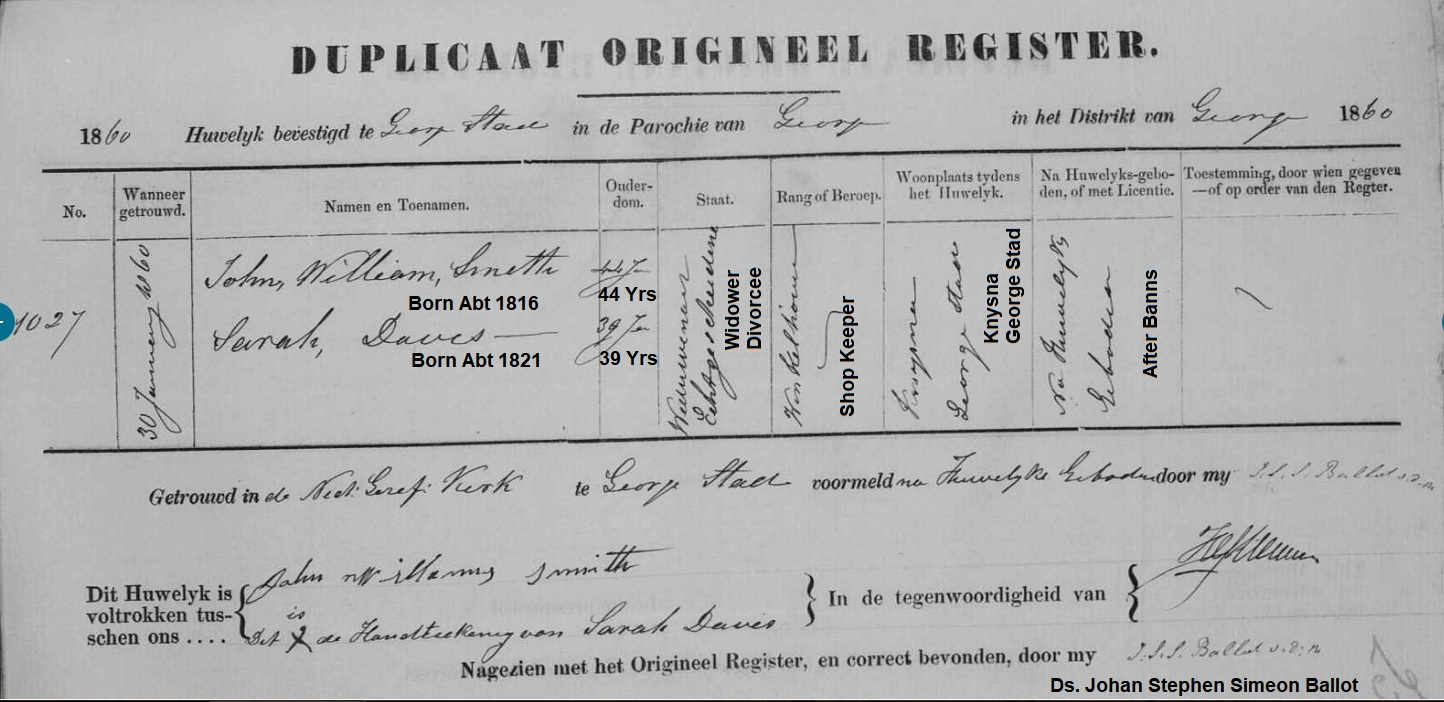 DUPLICAAT ORIGINEEL REGISTER.
1860 Huwelyk bevestigd te George Stad in de Parochie van George in het Distrikt van George 1860
No. Wanneer getrouwd. Namen en Toenamen. Ouder-dom. Staat. Rang of Beroep. Woonplaats tydens het Huwelyk. Na Huwelyks-gebo-den, of met Licentie. Toestemming, door wien gegeven —of op order van den Regter.
1027
30 January 1860
John, William, Smith 44 Ja
Born Abt 1816 44 Yrs
Sarah, Daves 39 Ja
Born Abt 1821 39 Yrs
Weduwenaar
Echtgescheidene
Widower
Divorcee
Winkelhouer
Shop Keeper
Knysna
George Stad
Knysna
George Stad
Na Huwelyks
Geboden
After Banns
Getrouwd in de Ned: Geref: Kerk te George Stad voormeld na Huwelyks Geboden door my J.S.S. Ballot v.d.m
Dit Huwelyk is voltrokken tus-schen ons .... { John Williams Smith } In de tegenwoordigheid van {
Dit is X de Handteekening van Sarah Daves
Nagezien met het Origineel Register, en correct bevonden, door my J.S.S. Ballot v.d.m
Ds. Johan Stephen Simeon Ballot